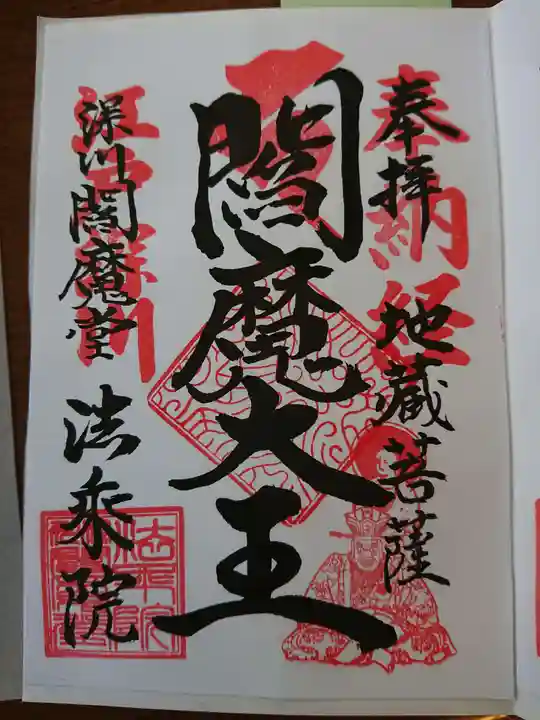 奉拝
納経
地蔵菩薩
閻魔大王
江戸深川
深川閻魔堂
法乗院